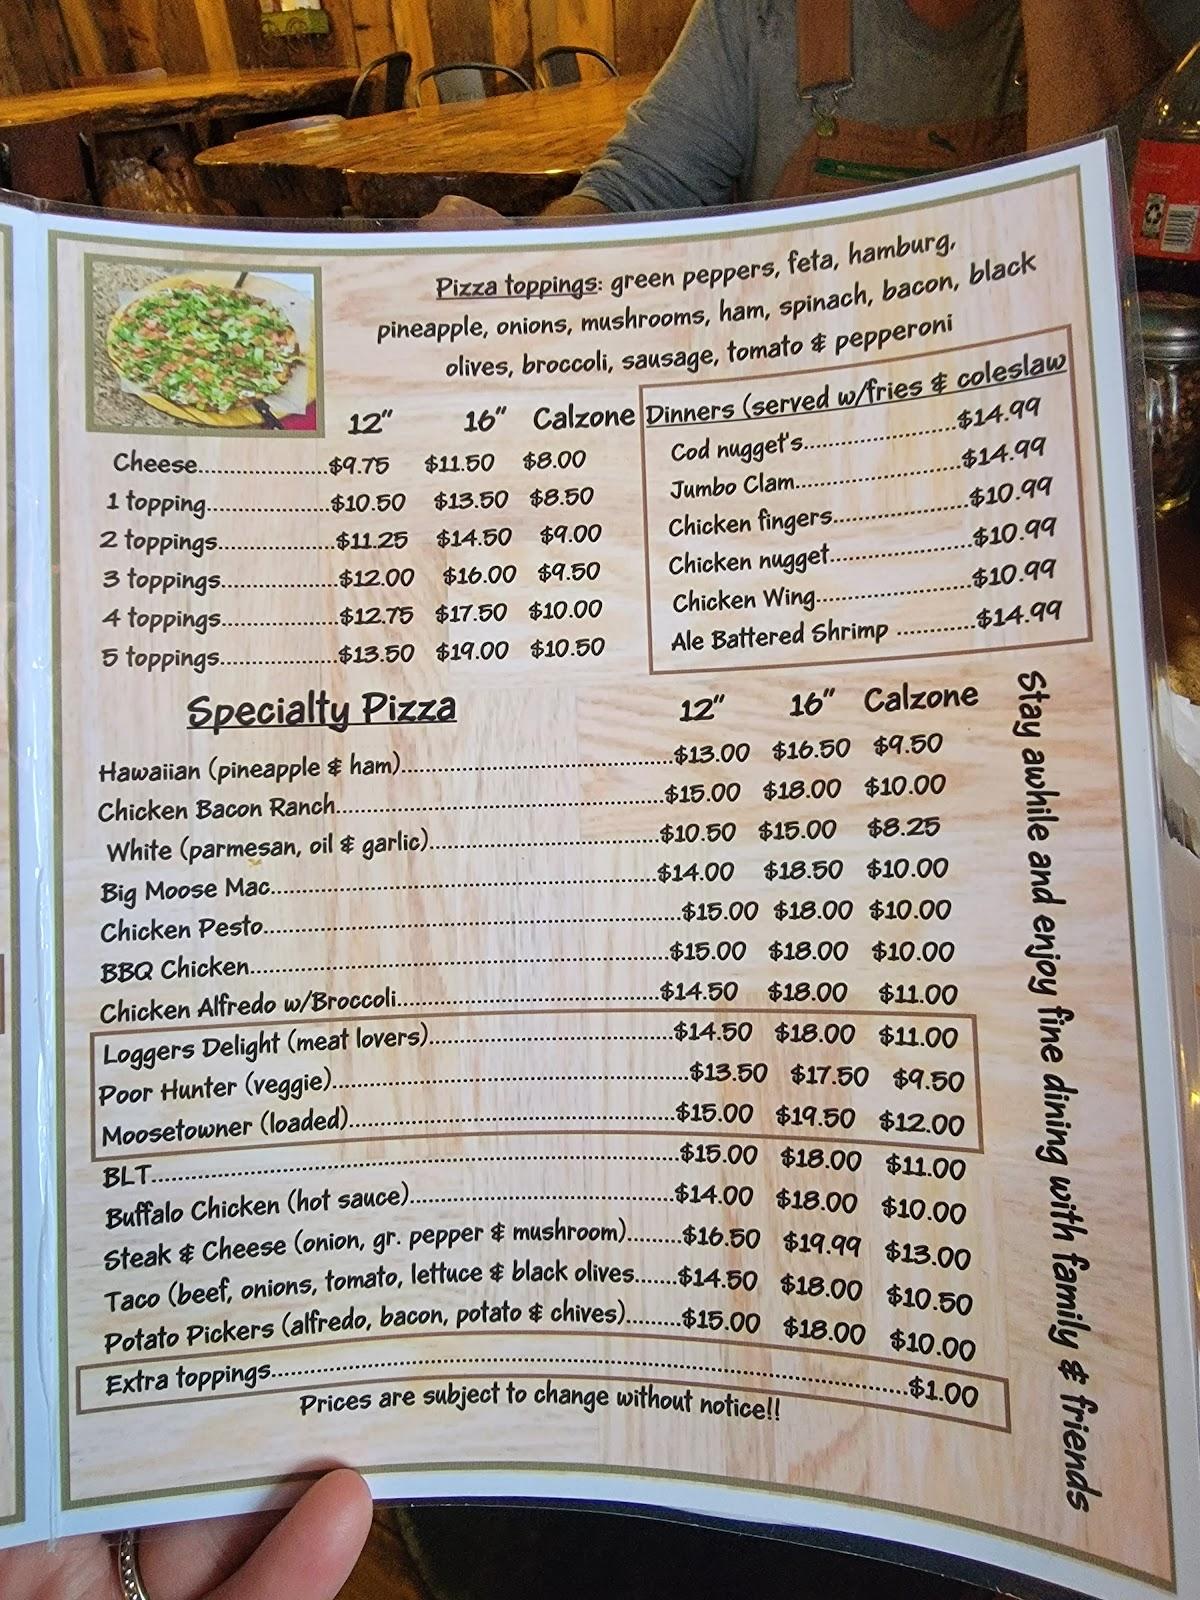 Pizza toppings: green peppers, feta, hamburg,
pineapple, onions, mushrooms, ham, spinach, bacon, black
olives, broccoli, sausage, tomato & pepperoni
12" 16" Calzone
Cheese....................$9.75 $11.50 $8.00
1 topping...................$10.50 $13.50 $8.50
2 toppings..................$11.25 $14.50 $9.00
3 toppings..................$12.00 $16.00 $9.50
4 toppings..................$12.75 $17.50 $10.00
5 toppings..................$13.50 $19.00 $10.50
Dinners (served w/fries & coleslaw
Cod nugget's.......................$14.99
Jumbo Clam.........................$14.99
Chicken fingers....................$10.99
Chicken nugget.....................$10.99
Chicken Wing.......................$10.99
Ale Battered Shrimp ............$14.99
Specialty Pizza
12" 16" Calzone
Hawaiian (pineapple & ham)........................................$13.00 $16.50 $9.50
Chicken Bacon Ranch................................................$15.00 $18.00 $10.00
White (parmesan, oil & garlic)...................................$10.50 $15.00 $8.25
Big Moose Mac.........................................................$14.00 $18.50 $10.00
Chicken Pesto..............................................................$15.00 $18.00 $10.00
BBQ Chicken...............................................................$15.00 $18.00 $10.00
Chicken Alfredo w/Broccoli.......................................$14.50 $18.00 $11.00
Loggers Delight (meat lovers)....................................$14.50 $18.00 $11.00
Poor Hunter (veggie)....................................................$13.50 $17.50 $9.50
Moosetowner (loaded)................................................$15.00 $19.50 $12.00
BLT..............................................................................$15.00 $18.00 $11.00
Buffalo Chicken (hot sauce).......................................$14.00 $18.00 $10.00
Steak & Cheese (onion, gr. pepper & mushroom)........$16.50 $19.99 $13.00
Taco (beef, onions, tomato, lettuce & black olives.......$14.50 $18.00 $10.50
Potato Pickers (alfredo, bacon, potato & chives)........$15.00 $18.00 $10.00
Extra toppings...............................................................................................$1.00
Prices are subject to change without notice!!
Stay awhile and enjoy fine dining with family & friends